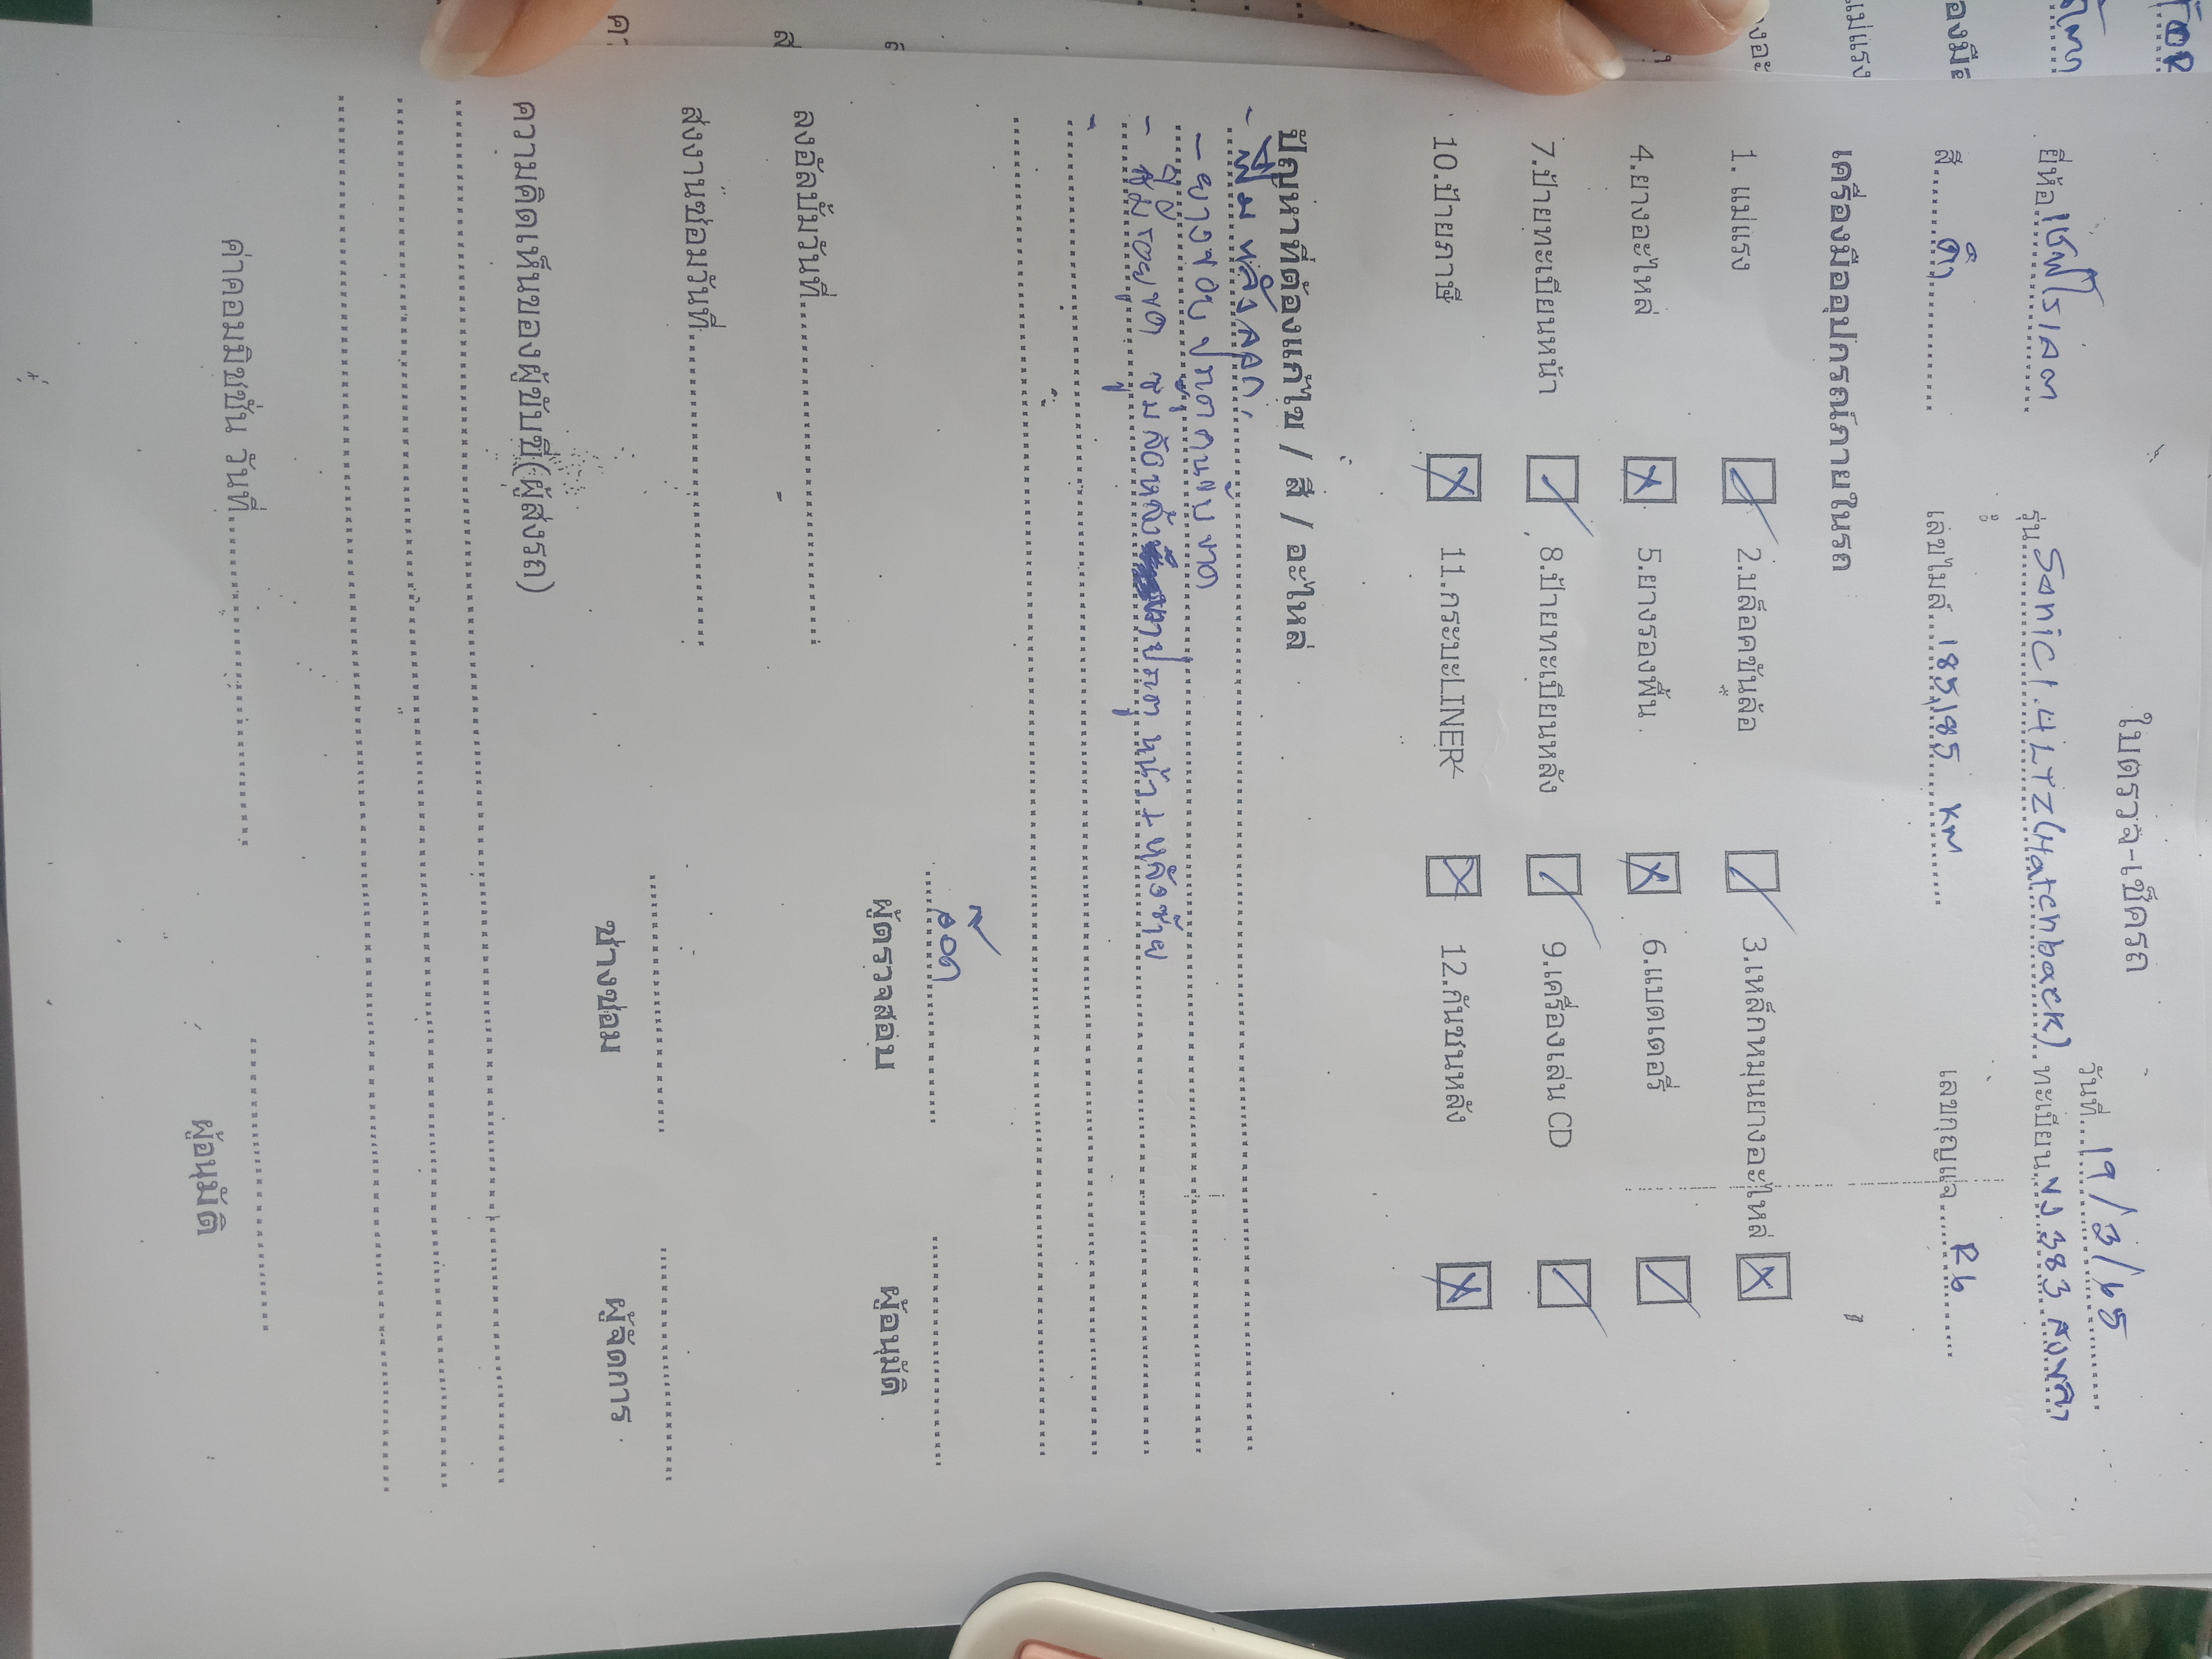 ใบตรวจ-เช็ครถ
วันที่ 19/3/65
ยี่ห้อ เชฟโรเลต รุ่น Sonic 1.4 LTZ (Hatchback) ทะเบียน ขง 383 สงขลา
สี ดำ เลขไมล์ 185,185 km เลขกุญแจ R6
เครื่องมืออุปกรณ์ภายในรถ
1. แม่แรง ✓ 2.บล็อคขันล้อ ✓ 3.เหล็กหมุนยางอะไหล่ ✗
4.ยางอะไหล่ ✗ 5.ยางรองพื้น ✗ 6.แบตเตอรี่ ✓
7.ป้ายทะเบียนหน้า ✓ 8.ป้ายทะเบียนหลัง ✓ 9.เครื่องเล่น CD ✓
10.ป้ายภาษี ✗ 11.กระบะLINER ✗ 12.กันชนหลัง ✗
ปัญหาที่ต้องแก้ไข / สี / อะไหล่
- ฟิล์มหลังลอก
- ยางขอบประตูคนขับขาด
- รอยขูด ซุ้มล้อหลัง ประตูหน้า + หลังซ้าย
-
ผู้ตรวจสอบ ผู้อนุมัติ
ลงอัลบั้มวันที่
ส่งงานซ่อมวันที่
ช่างซ่อม ผู้จัดการ
ความคิดเห็นของผู้ขับขี่(ผู้ส่งรถ)
ค่าคอมมิชชั่น วันที่
ผู้อนุมัติ